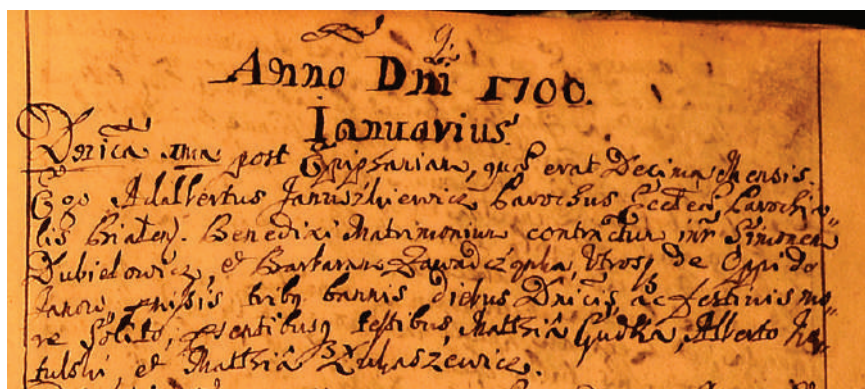 Anno Dni 1700.
Ianuarius.
Dnica ima post Epiphaniam, quæ erat Decima Mensis.
Ego Adalbertus Januszkiewicz Parochus Eccleæ Parochia-
lis Białen. Benedixi Matrimonium contractum intr Simonem
Dubielowicz, et Barbaram Zawadczonka, Utrosq de Oppido
Janow pmissis tribq bannis diebus Dnicis ac festiuis mo-
re Solito, psentibusq testibus Matthia Gudka, Alberto
et Matthia Łukaszewicz.